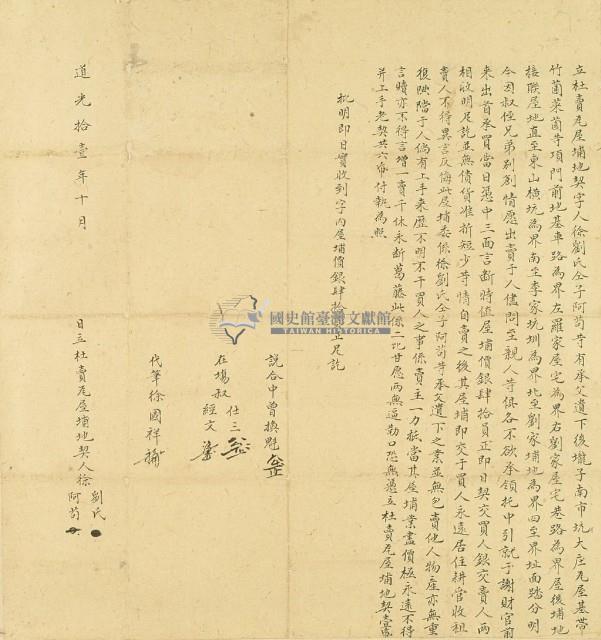 立杜賣瓦屋埔地契字人徐劉氏仝子阿苟等有承父遺下後壠子南市坑大庄瓦屋基帶
竹蘭菜蘭等項門前地基車路為界左羅家屋宅為界右劉家屋宅巷路為界屋後埔地
接聯屋地直至東山橫坑為界南至李家坑圳為界北至劉家埔地為界四至界址面踏分明
今因叔侄兄弟別創情愿出賣于人儘問至親人等俱各不欲承領托中引就于謝財官前
來出首承買當日憑中三面言斷時值屋埔價銀肆拾員正即日契交買人銀交賣人兩
相收明足訖並無債貨准折短少等情自賣之後其屋埔即交于買人永遠居住耕管收租
賣人不得異言反悔此屋埔委係徐劉氏仝子阿苟等承父遺下之業並無包賣他人物產亦無重
復典當于人倘有上手來歷不明不干買人之事係賣主一力抵當其屋埔業盡價極永遠不得
言贖亦不得言增一賣千休永斷葛藤此係二比甘愿兩無逼勒口恐無憑立杜賣瓦屋埔地契壹帋
并上手老契共六帋付執為照
批明即日實收到字內屋埔價銀肆拾正足訖
說合中曾換魁
在場叔 仕三
經文
代筆徐國祥
道光拾壹年十月
日立杜賣瓦屋埔地契人徐劉氏
阿苟
國史館臺灣文獻館
TAIWAN HISTORICA